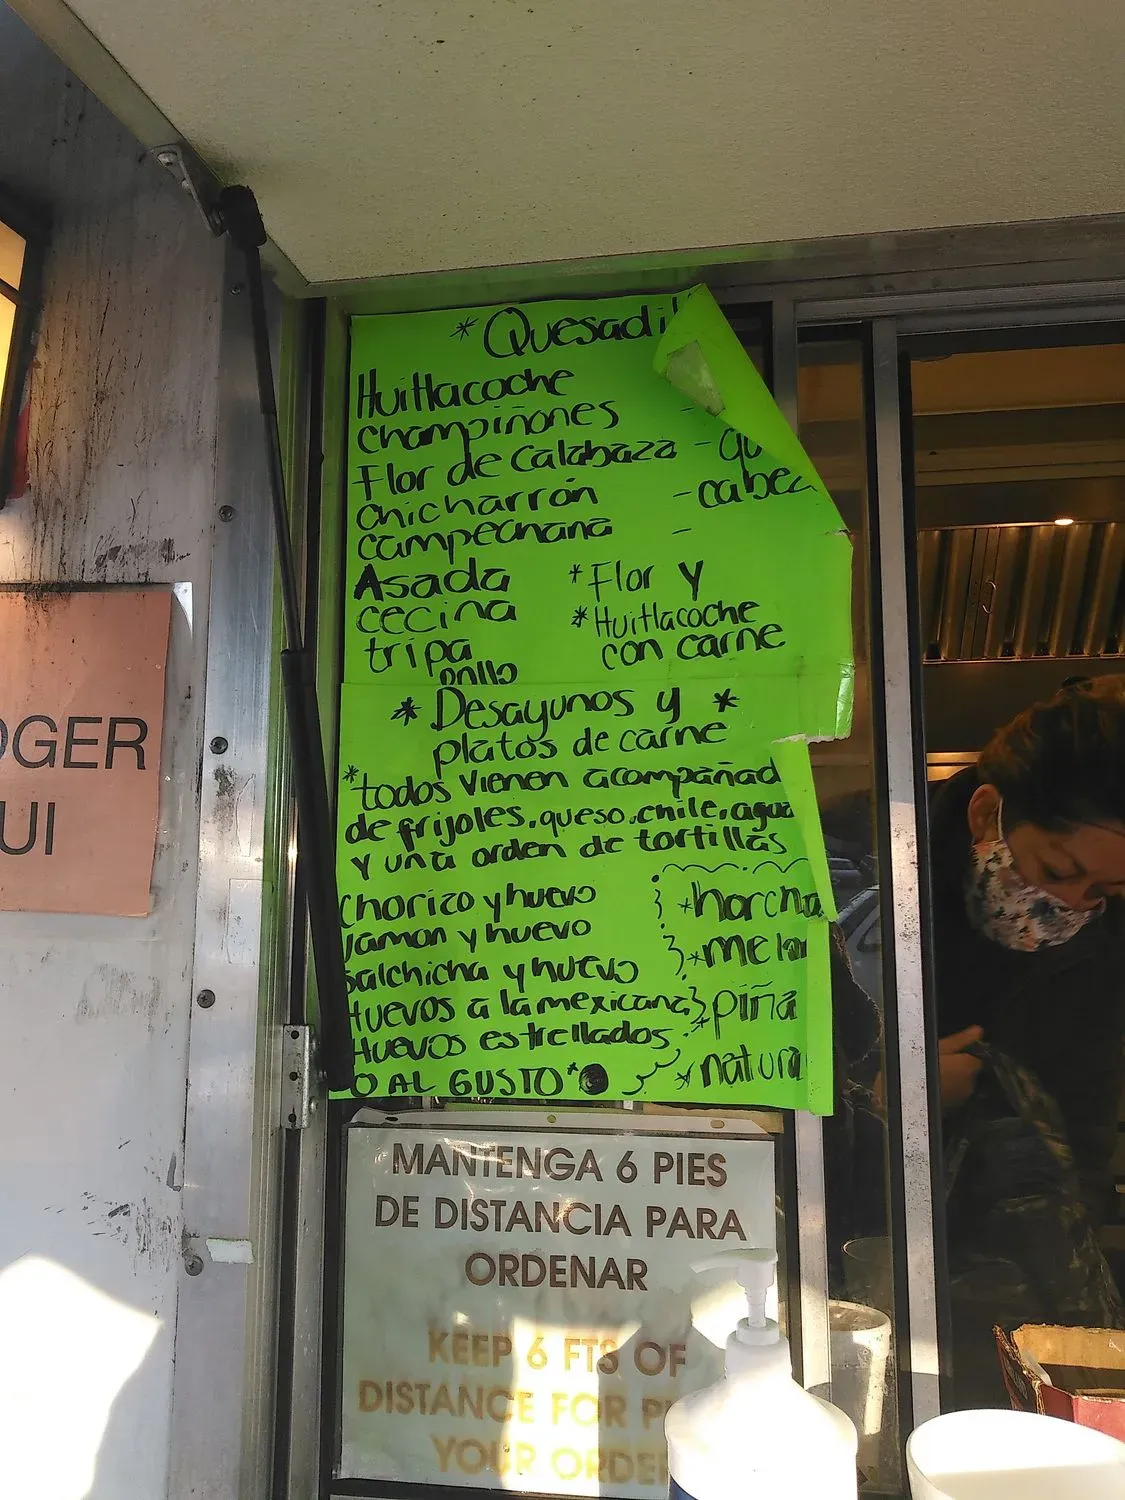 * Quesadil
Huitlacoche
champiñones -
Flor de calabaza - qu
chicharrón - cabez
campechana -
Asada
cecina
tripa
pollo
* Flor y
* Huitlacoche
con carne
* Desayunos y *
platos de carne
* todos vienen acompañad
de frijoles, queso, chile, agua
y una orden de tortillas
Chorizo y huevo
Jamon y huevo
Salchicha y huevo
Huevos a la mexicana
Huevos estrellados
O AL GUSTO
* horcha
* melon
* piña
* natura
OGER
UI
MANTENGA 6 PIES
DE DISTANCIA PARA
ORDENAR
KEEP 6 FTS OF
DISTANCE FOR P
YOUR ORDER